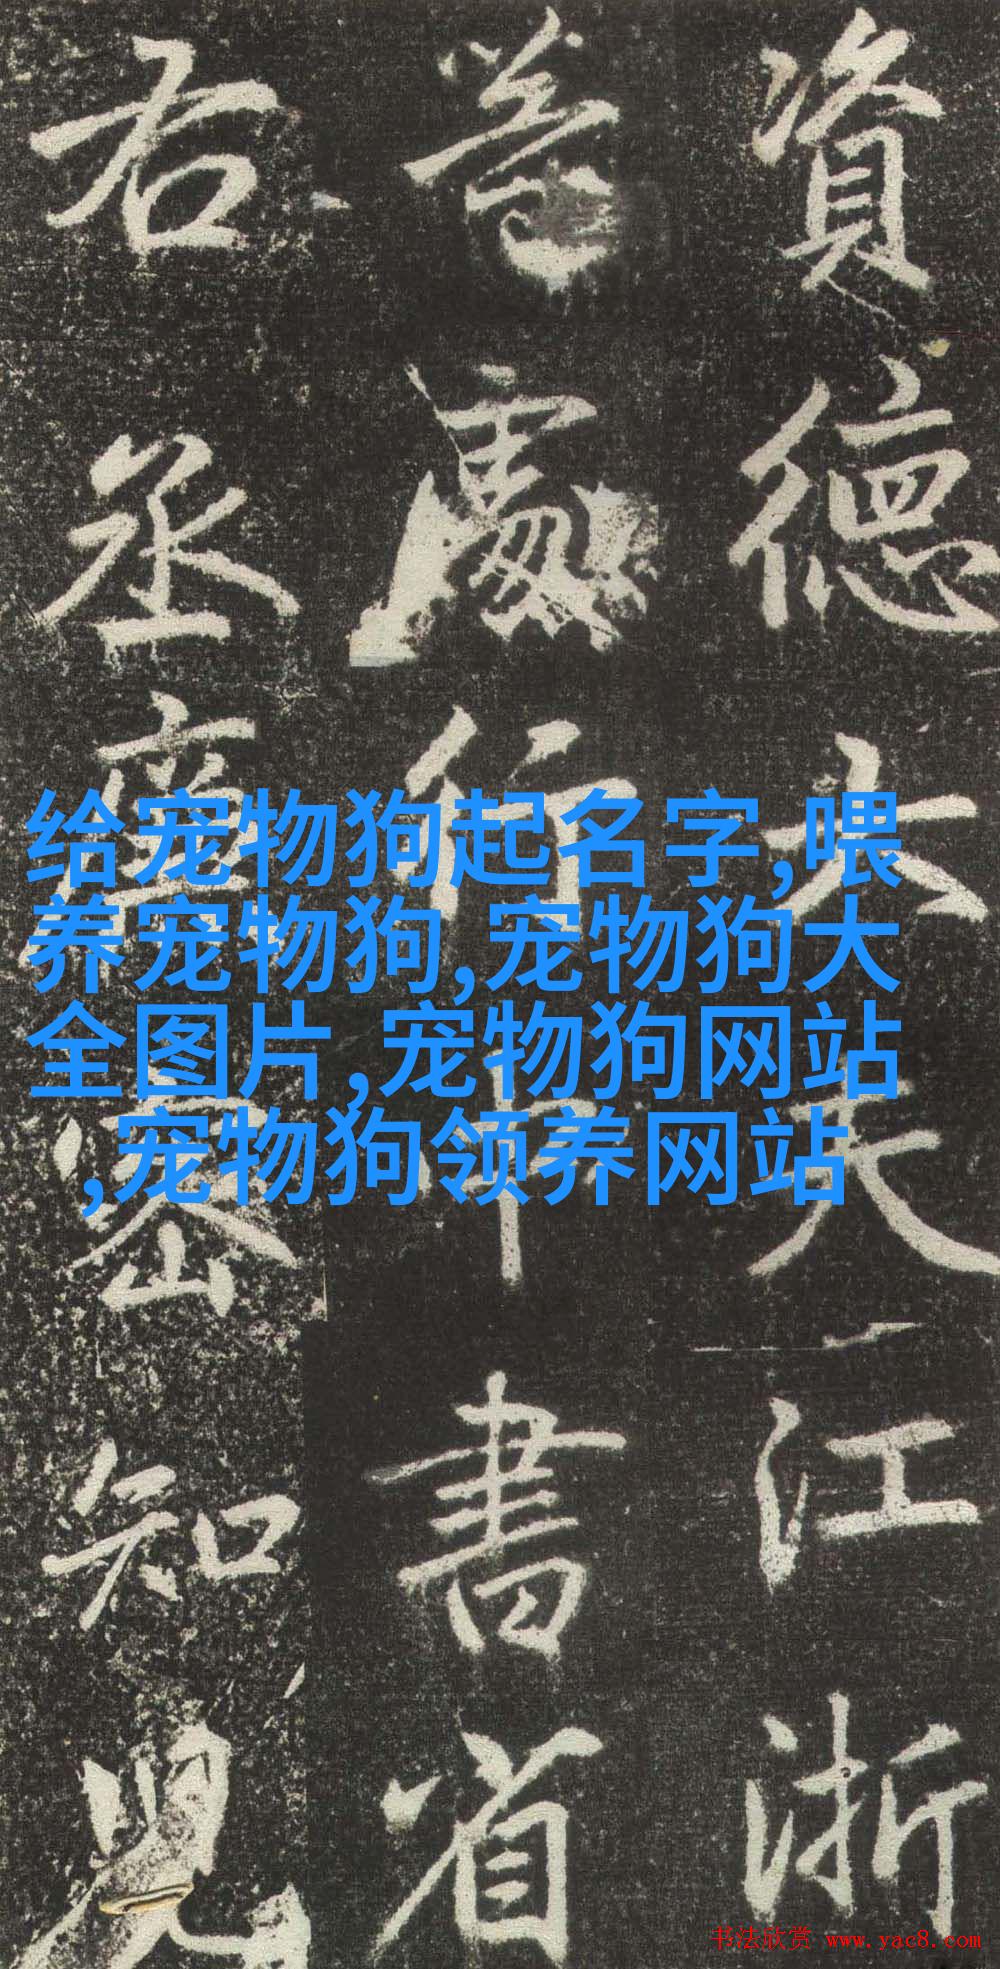 資德大夫江浙
等處行中書省
右丞密知兒
给宠物狗起名字,喂
养宠物狗,宠物狗大
全图片,宠物狗网站
,宠物狗领养网站
书法欣赏 www.yac8.com